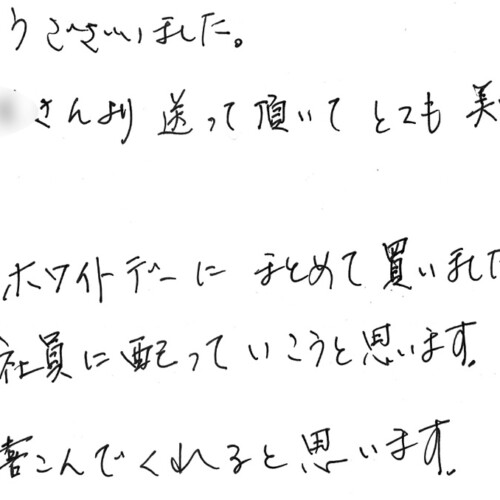 うございました。
さんより 送って頂いて とても 美
ホワイトデーに まとめて買いました
社員に配っていこうと思います。
喜こんでくれると思います。